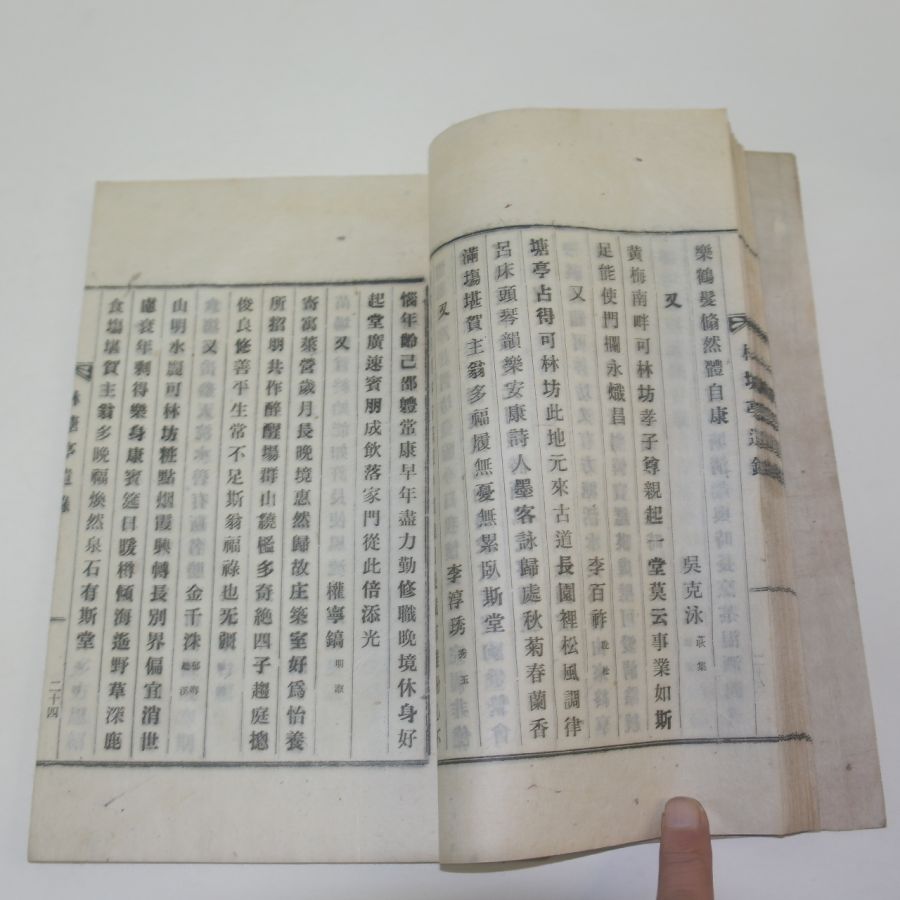 樂鶴髮翛然體自康
又
吳克泳
黃梅南畔可林坊孝子尊親起一堂莫云事業如斯
足能使門攔永熾昌
又
李百祚
塘亭占得可林坊此地元來古道長園裡松風調律
呂床頭琴韻樂安康詩人墨客詠歸處秋菊春蘭香
滿塲堪賀主翁多福履無憂無累臥斯堂
又
李淳琇 秀玉
惱年齡己邵軆堂康早年盡力勤修職晚境休身好
起堂廣速賓朋成飮落家門從此倍添光
又
權寧鎬
畜寓萊營歲月長晚境惠然歸故庄築室好爲怡養
所招朋共作醉醒塲群山繞檻多奇絶四子趨庭摠
俊良修善平生常不足斯翁福祿也旡疆
又
金千洙
山明水麗可林坊粧點烟霞興轉長別界偏宜消世
慮衰年剩得樂身康賓筵日暖樽傾海遙野草深鹿
食塲堪賀主翁多晚福煥然泉石有斯堂
二十四